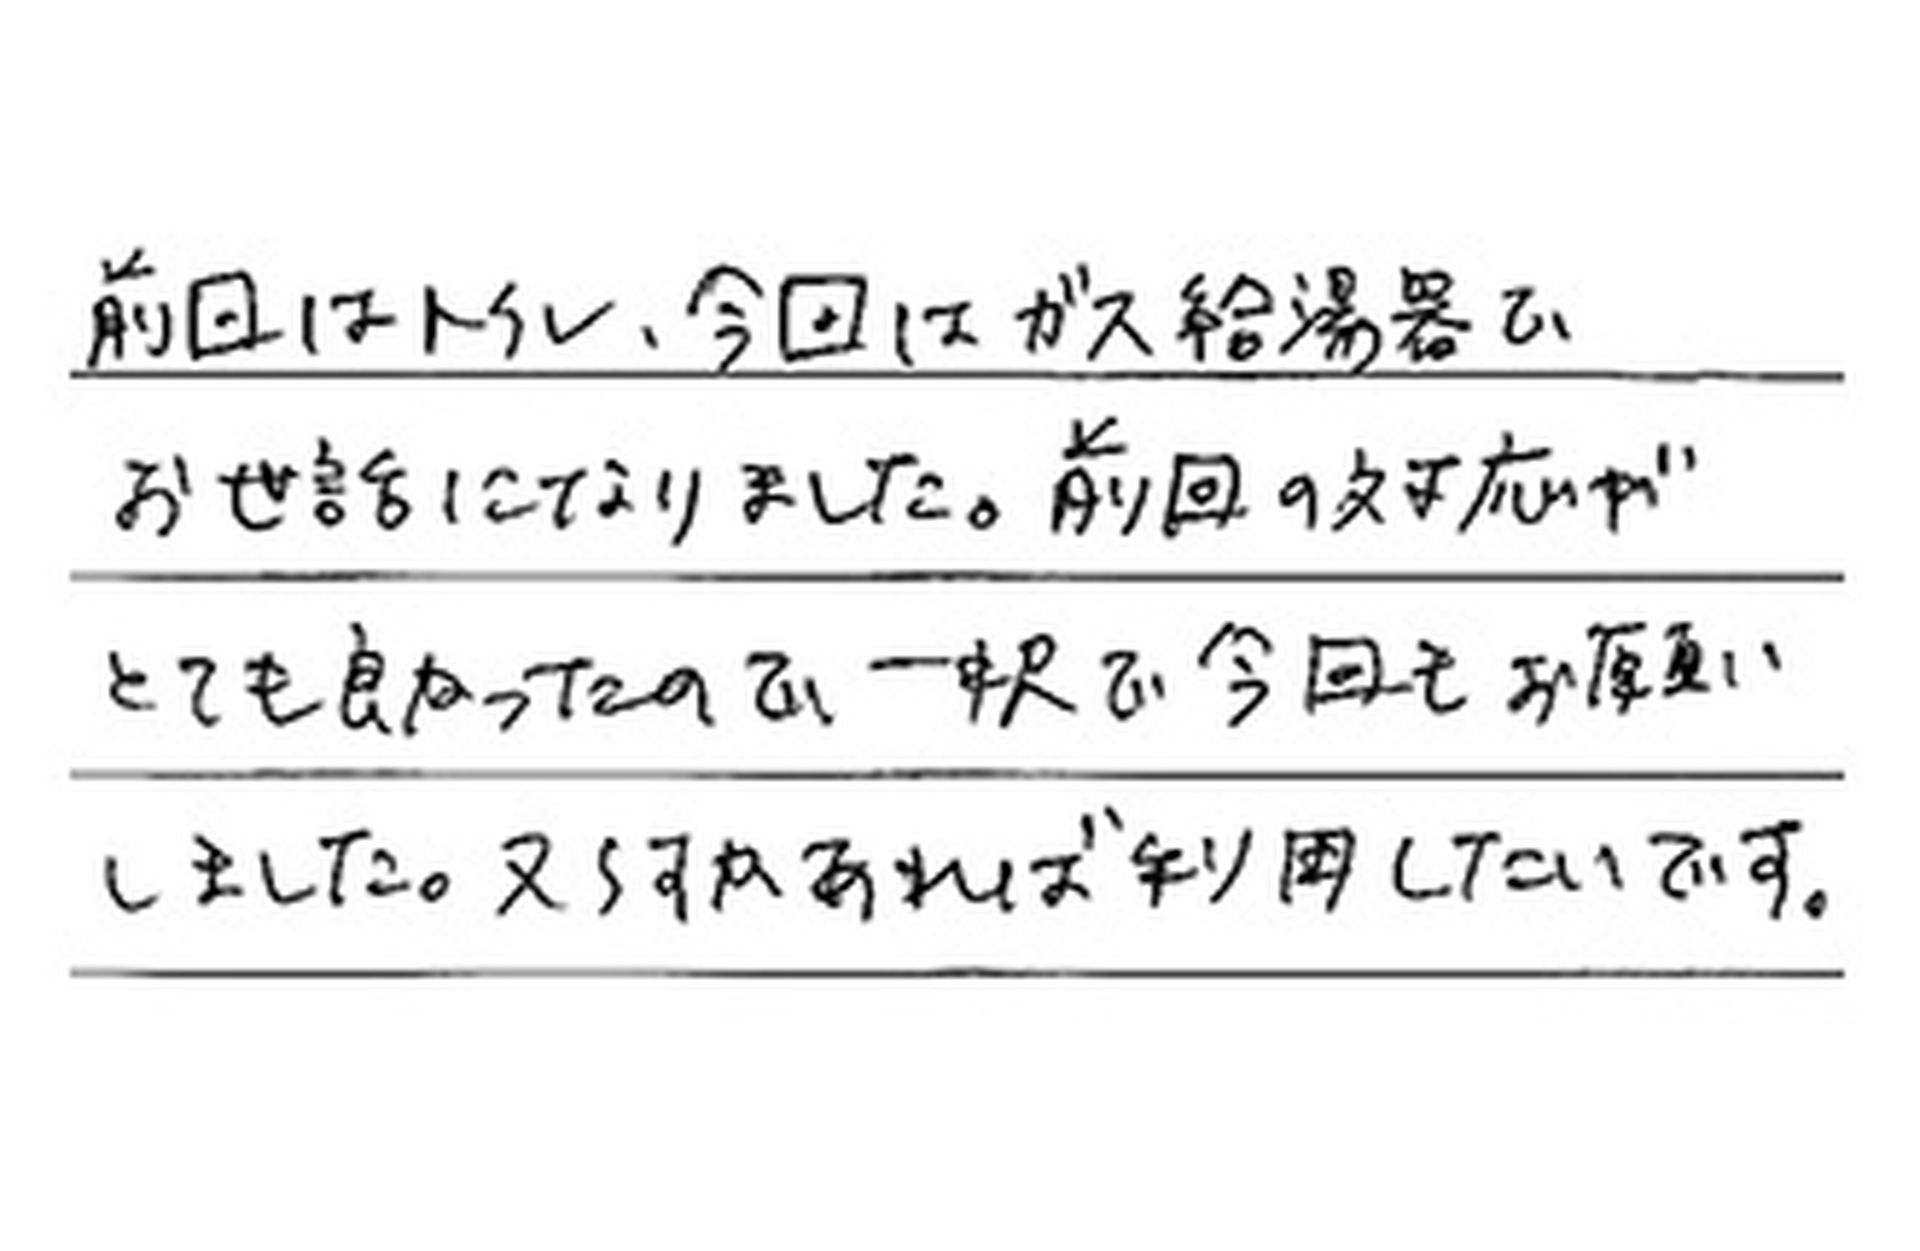 前回はトイレ、今回はガス給湯器で
お世話になりました。前回の対応が
とても良かったので一択で今回もお願い
しました。又あれば利用したいです。